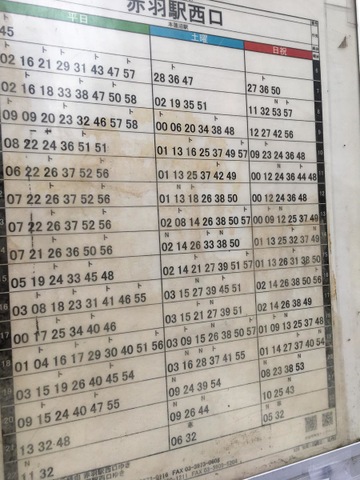 赤羽駅西口
平日 土曜 日祝
45
02 16 21 29 31 43 47 57 28 36 47 27 36 50
02 16 18 33 38 47 50 58 02 19 35 51 11 32 53 57
09 09 20 23 32 46 57 58 00 06 20 34 38 48 12 27 42 56
08 22 24 36 51 51 01 13 16 25 37 49 57 09 23 24 36 48
06 22 26 37 52 56 01 13 25 37 42 49 00 12 24 36 44 48
07 22 26 37 52 56 01 13 18 26 38 50 00 12 24 36 48
07 22 26 37 52 56 02 08 14 26 38 50 57 00 09 12 25 37 49
07 21 26 36 50 56 02 14 26 33 38 50 01 13 25 32 37 49
05 19 24 33 45 48 02 14 21 27 39 51 57 01 13 26 31 38 50
03 08 18 23 31 41 46 55 03 15 27 39 45 51 02 14 26 38 50 56
00 17 25 34 40 46 03 15 21 27 39 51 02 14 26 38 49
01 04 16 17 29 30 40 51 56 03 09 15 26 38 50 57 01 09 13 25 37 48
03 15 19 26 40 45 54 03 16 28 37 41 55 01 14 27 37 40 54
09 15 24 40 47 55 09 24 39 54 08 23 38 53
13 32 48 09 26 44 10 25 43
11 32 06 32 05 32